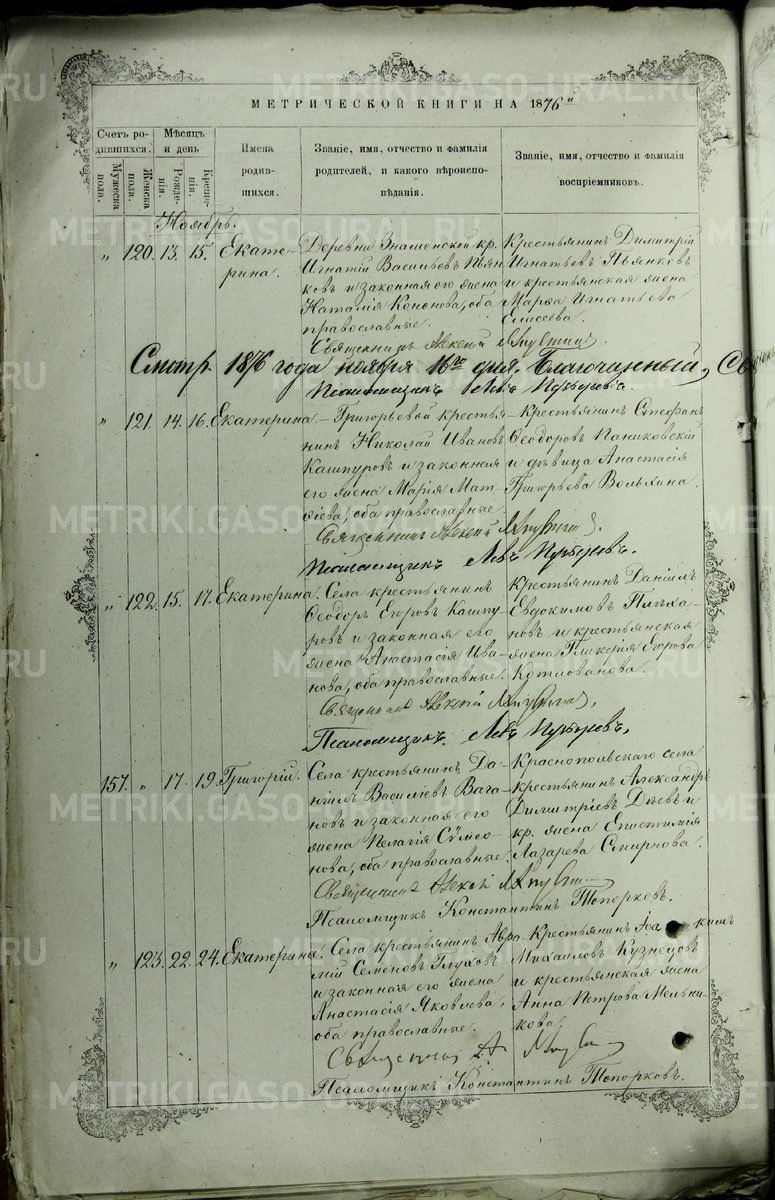 МЕТРИЧЕСКОЙ КНИГИ НА 1876й
Счетъ родившихся.
Мужеска пола.
Женска пола.
Мѣсяцъ и день
Рожденія.
Крещенія.
Имена родившихся.
Званіе, имя, отчество и фамилія родителей, и какого вѣроисповѣданія.
Званіе, имя, отчество и фамилія воспріемниковъ.
Ноябрь.
„ 120. 13. 15. Екатерина.
Деревни Знаменской кр.
Игнатій Васильевъ Пьянковъ
и законная его жена
Наталія Кононова, оба
православные.
Крестьянинъ Димитрій
Игнатьевъ Пьянковъ
и крестьянская жена
Марѳа Игнатьева
Елисеева.
Священникъ Алексій
Смотр. 1876 года ноября 16го дня. Благочинный, Св
Псаломщикъ Левъ
„ 121. 14. 16. Екатерина.
Григорьевой крестьянинъ
Николай Ивановъ
Кашпуровъ и законная
его жена Марія Матѳіева,
оба православные.
Крестьянинъ Стефанъ
Ѳеодоровъ Паниковскій
и дѣвица Анастасія
Григорьева Вольхина.
Священникъ Алексій
Псаломщикъ Левъ
„ 122. 15. 17. Екатерина.
Села крестьянинъ
Ѳеодоръ Егоровъ Кашпуровъ
и законная его
жена Анастасія Иванова,
оба православные.
Крестьянинъ Даніилъ
Евдокимовъ Плѣхановъ
и крестьянская
жена Гликерія Егорова
Котлованова.
Священникъ Алексій
Псаломщикъ Левъ
157. „ 17. 19. Григорій.
Села крестьянинъ Даніилъ
Василіевъ Вагановъ
и законная его
жена Пелагія Сѵмеонова,
оба православные.
Краснопольскаго села
крестьянинъ Александръ
Димитріевъ Дѣевъ и
кр. жена Епистимія
Лазарева Смирнова.
Священникъ Алексій
Псаломщикъ Константинъ Топорковъ.
„ 123. 22. 24. Екатерина.
Села крестьянинъ
Семеновъ Глуховъ
и законная его жена
Анастасія Яковлева,
оба православные.
Крестьянинъ Іоакимъ
Михаиловъ Кузнецовъ
и крестьянская жена
Анна Петрова Мельникова.
Священникъ А.
Псаломщикъ Константинъ Топорковъ.
METRIKI.GASO-URAL.RU